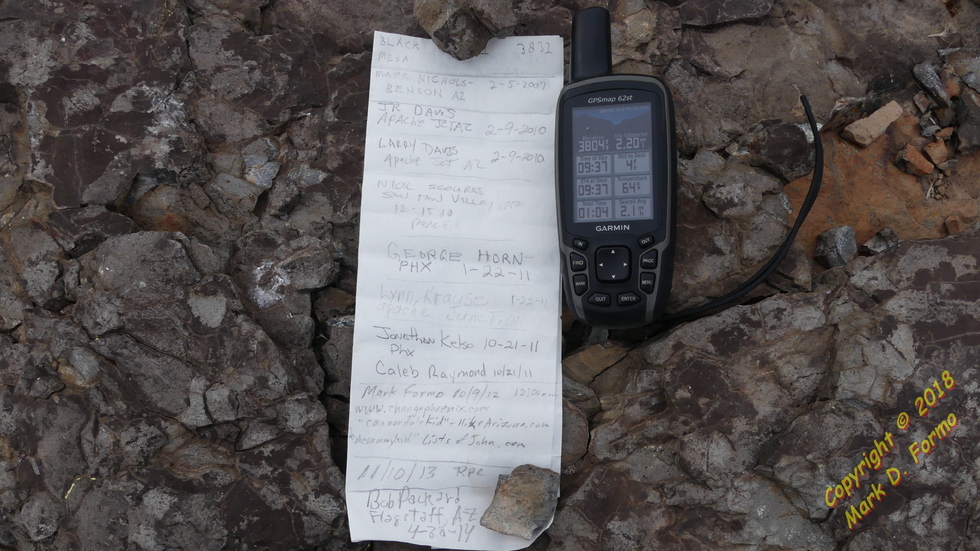 BLACK 3831
MESA
MARK NICHOLS-
BENSON AZ
JR DAVIS
Apache Jct AZ 2-9-2010
LARRY DAVIS 2-9-2010
Apache Jct AZ
NICK SCOURAS
SAN TAN VALLEY, AZ
12-15-10
PEACE!
GEORGE HORN
PHX 1-22-11
Lynn Krause 1-22-11
Apache Junction
Jonathan Kelso 10-21-11
Phx
Caleb Raymond 10/21/11
Mark Formo 10/9/12
www.chargephoenix.com
HikeArizona.com
Lists of John.com
11/10/13
Bob Packard
Flagstaff, AZ
4-30-14
GPSmap 62st
3804 2.20
09:37 4
09:37 64
01:04 2.1
GARMIN
IN OUT
FIND PAGE
MARK MENU
QUIT ENTER
Copyright © 2018
Mark D. Formo